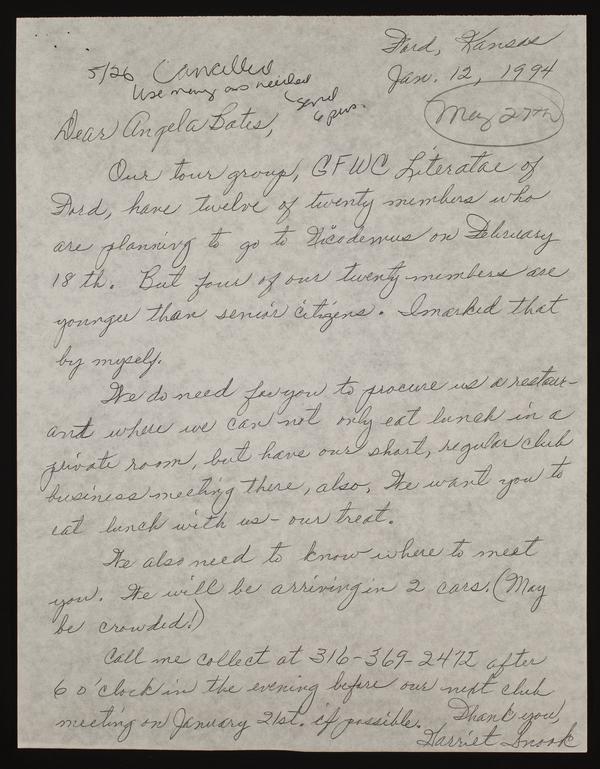 Ford, Kansas
5/26 Cancelled
Jan. 12, 1994
Use money as needed
Send
6 pers.
May 27th
Dear Angela Bates,
Our tour group, GFWC Literatae of
Ford, have twelve of twenty members who
are planning to go to Nicodemus on February
18th. But four of our twenty members are
younger than senior citizens. I marked that
by myself.
We do need for you to procure us a restaur-
ant where we can not only eat lunch in a
private room, but have our short, regular club
business meeting there, also. We want you to
eat lunch with us - our treat.
We also need to know where to meet
you. We will be arriving in 2 cars. (May
be crowded!)
Call me collect at 316-369-2472 after
6 o'clock in the evening before our next club
meeting on January 21st. if possible. Thank you,
Harriet Snook